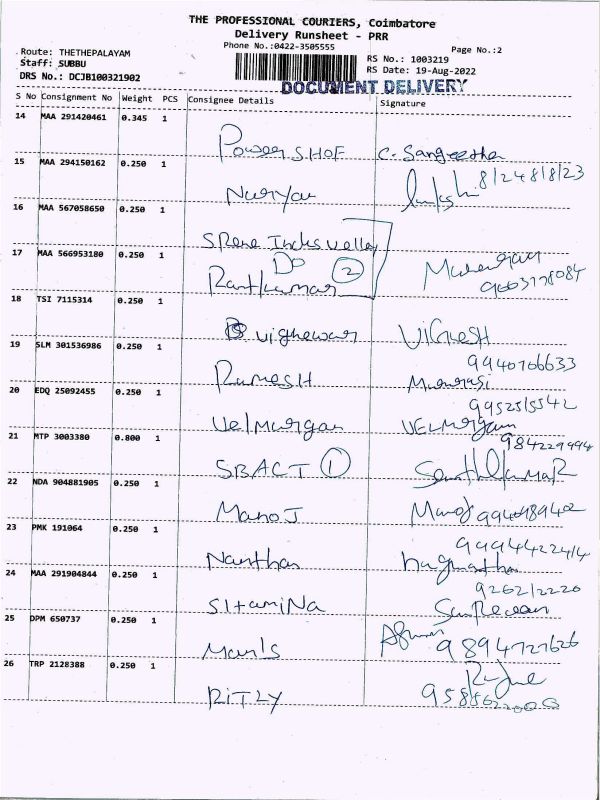 THE PROFESSIONAL COURIERS, Coimbatore
Delivery Runsheet - PRR
Phone No.:0422-3505555
Page No.:2
Route: THETHEPALAYAM
RS No.: 1003219
Staff: SUBBU
RS Date: 19-Aug-2022
DRS No.: DCJB100321902
DOCUMENT DELIVERY
S No Consignment No Weight PCS Consignee Details Signature
14 MAA 291420461 0.345 1
Power SHOF C. Sangeetha
15 MAA 294150162 0.250 1
8124818123
16 MAA 567058650 0.250 1
17 MAA 566953180 0.250 1
Do
2
Ranthkumar
18 TSI 7115314 0.250 1
Vighewar VIGNESH
19 SLM 301536986 0.250 1
9940706633
RameSH
20 EDQ 25092455 0.250 1
Velmurgan VELMurgan
21 MTP 3003380 0.800 1
SBACT 1 SenthilkumaR
22 NDA 904881905 0.250 1
ManoJ Manoj
23 PMK 191064 0.250 1
Nantha
24 MAA 291904844 0.250 1
9262122220
SitamiNa
25 DPM 650737 0.250 1
9894727626
26 TRP 2128388 0.250 1
RiTZY